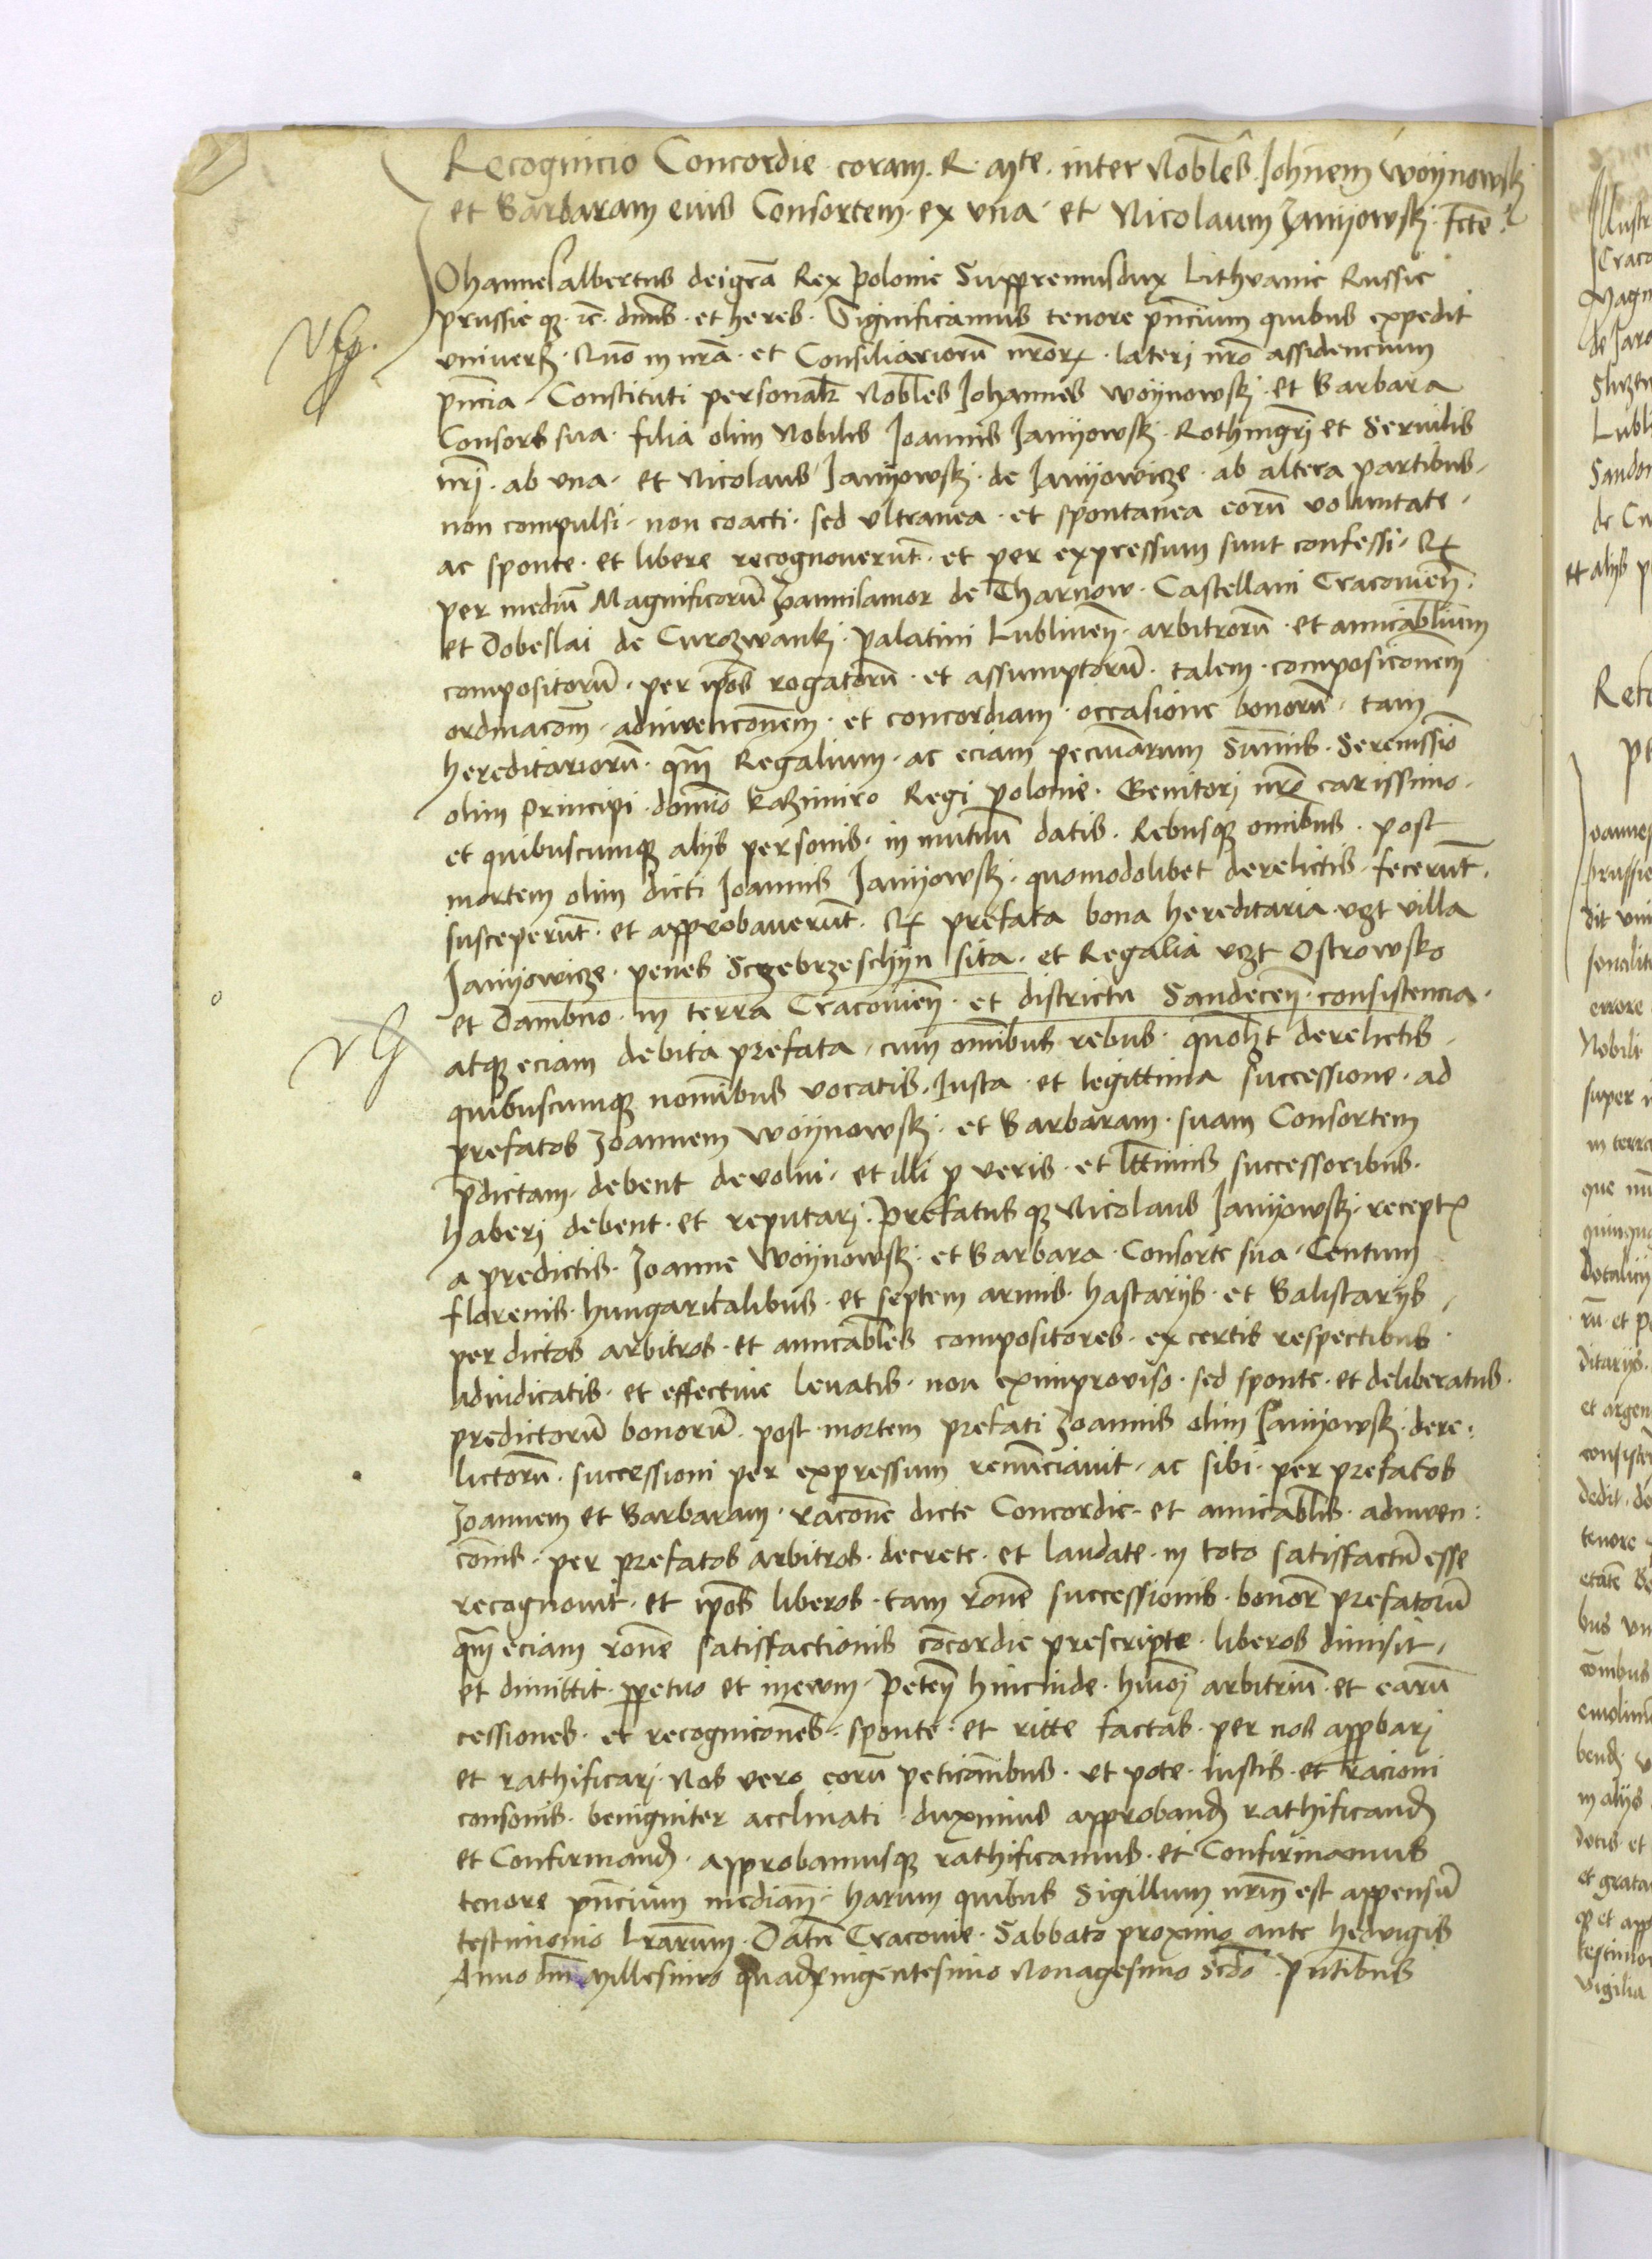 Recognicio Concordie coram. R. Mte. inter Nobłes. Johnem woÿnowskj
et Barbaram eius Consortem. ex vna. et Nicolaum Janÿowskj. fcte
Johannes albertus dei gra Rex polonie Suppremusdux Lithvanie Russie
prussie qꝫ. ic. dnus. et heres. Significamus tenore pncium quibus expedit
vniuers. Quo in nra. et Consiliariorū nror. laterj nro assidencium
pncia. Constituti personalr Nobłes Johannes woÿnowskj. et Barbara
Consors sua. filia olim Nobilis Joannis Janÿowskj. Rothmgrj et Seruilis
nrj. ab vna. et Nicolaus Janÿowskj. de Janÿowicze. ab altera partibus.
non compulsi. non coacti. sed vltranea. et spontanea eorū voluntate.
ac sponte. et libere recognouerūt. et per expressum sunt confessi. Qꝛ
per mediū Magnificorū de Tharnow. Castellani Cracouien.
et Dobeslai de Curozwankj. palatini Lublinen. arbitrorū. et amicabłium
compositorū. per ipos rogatorū. et assumptorū. talem. composiconem
ordinacom. adinuenconem. et concordiam. occasione bonorū. tam
hereditariorū. qm Regalium. ac eciam pecuniarum Sumis. Serenissio
olim principi. domio kazimiro Regi polonie. Genitorj nro carissimo.
et quibuscumqꝫ alÿs personis. in mutuū datis. Rebusqꝫ omibus. post
mortem olim dicti Joannis Janÿowskj. quomodolibet derelictis. fecerūt.
susceperūt. et approbauerūt. Qꝛ prefata bona hereditaria vzt villa
Janÿowicze. penes Sczebrzeschÿn sita. et Regalia vzt Ostrowsko
et Dambno. in terra Cracouien. et districtu Sandecen. consistencia.
atqꝫ eciam debita prefata. cum omibus rebus. quolzt derelictis.
quibuscumqꝫ nominibus vocatis. Justa. et legittima successione. ad
prefatos Joannem woÿnowskj. et Barbaram. suam Consortem
pdictam. debent deuolui. et illi p veris. et lttimis successoribus.
haberj debent. et reputarj. Prefatus qꝫ Nicolaus Janÿowskj. recept
a predictis. Joanne Woÿnowskj. et Barbara. Consorte sua. Centum
florenis. hungaricalibus. et septem armis. hastarÿs. et Balistarÿs.
per dictos arbitros. et amicabłes compositores. ex certis respectibus
adiudicatis. et effectiue leuatis. non eximprouiso. sed sponte. et deliberatus.
predictorū bonorū. post mortem prefati Joannis olim Janÿowskj. dere:
lictorū. successioni per expressum renūnciauit. ac sibi. per prefatos
Joannem et Barbaram. racone dicte Concordie. et amicabłis. adinuen:
conis. per prefatos arbitros. decrete. et laudate. in toto satisfactū esse
recognouit. et ipos liberos. tam rone successionis. bonor prefatorū
qm eciam rone satisfactionis cocordie prescripte. liberos dimisit.
et dimittit. ppetuo et ineuum. Peten hincinde. huioi arbitriū. et earū
cessiones. et recogniciones. sponte. et ritte factas. per nos appbarj
et rathificarj. Nos vero eorū peticionibus. vt pote. iustis. et racioni
consonis. benigniter acclinati. duximus approband rathificand
et Confirmand. approbamusqꝫ rathificamus. et Confirmamus
tenore pncium median. harum quibus Sigillum nrm est appensū
testimonio lrarum. Datū Cracouie. Sabbato proximo ante hedvigis
Anno dni Millesimo quadringentesimo Nonagesimo Scdo. Pntibus